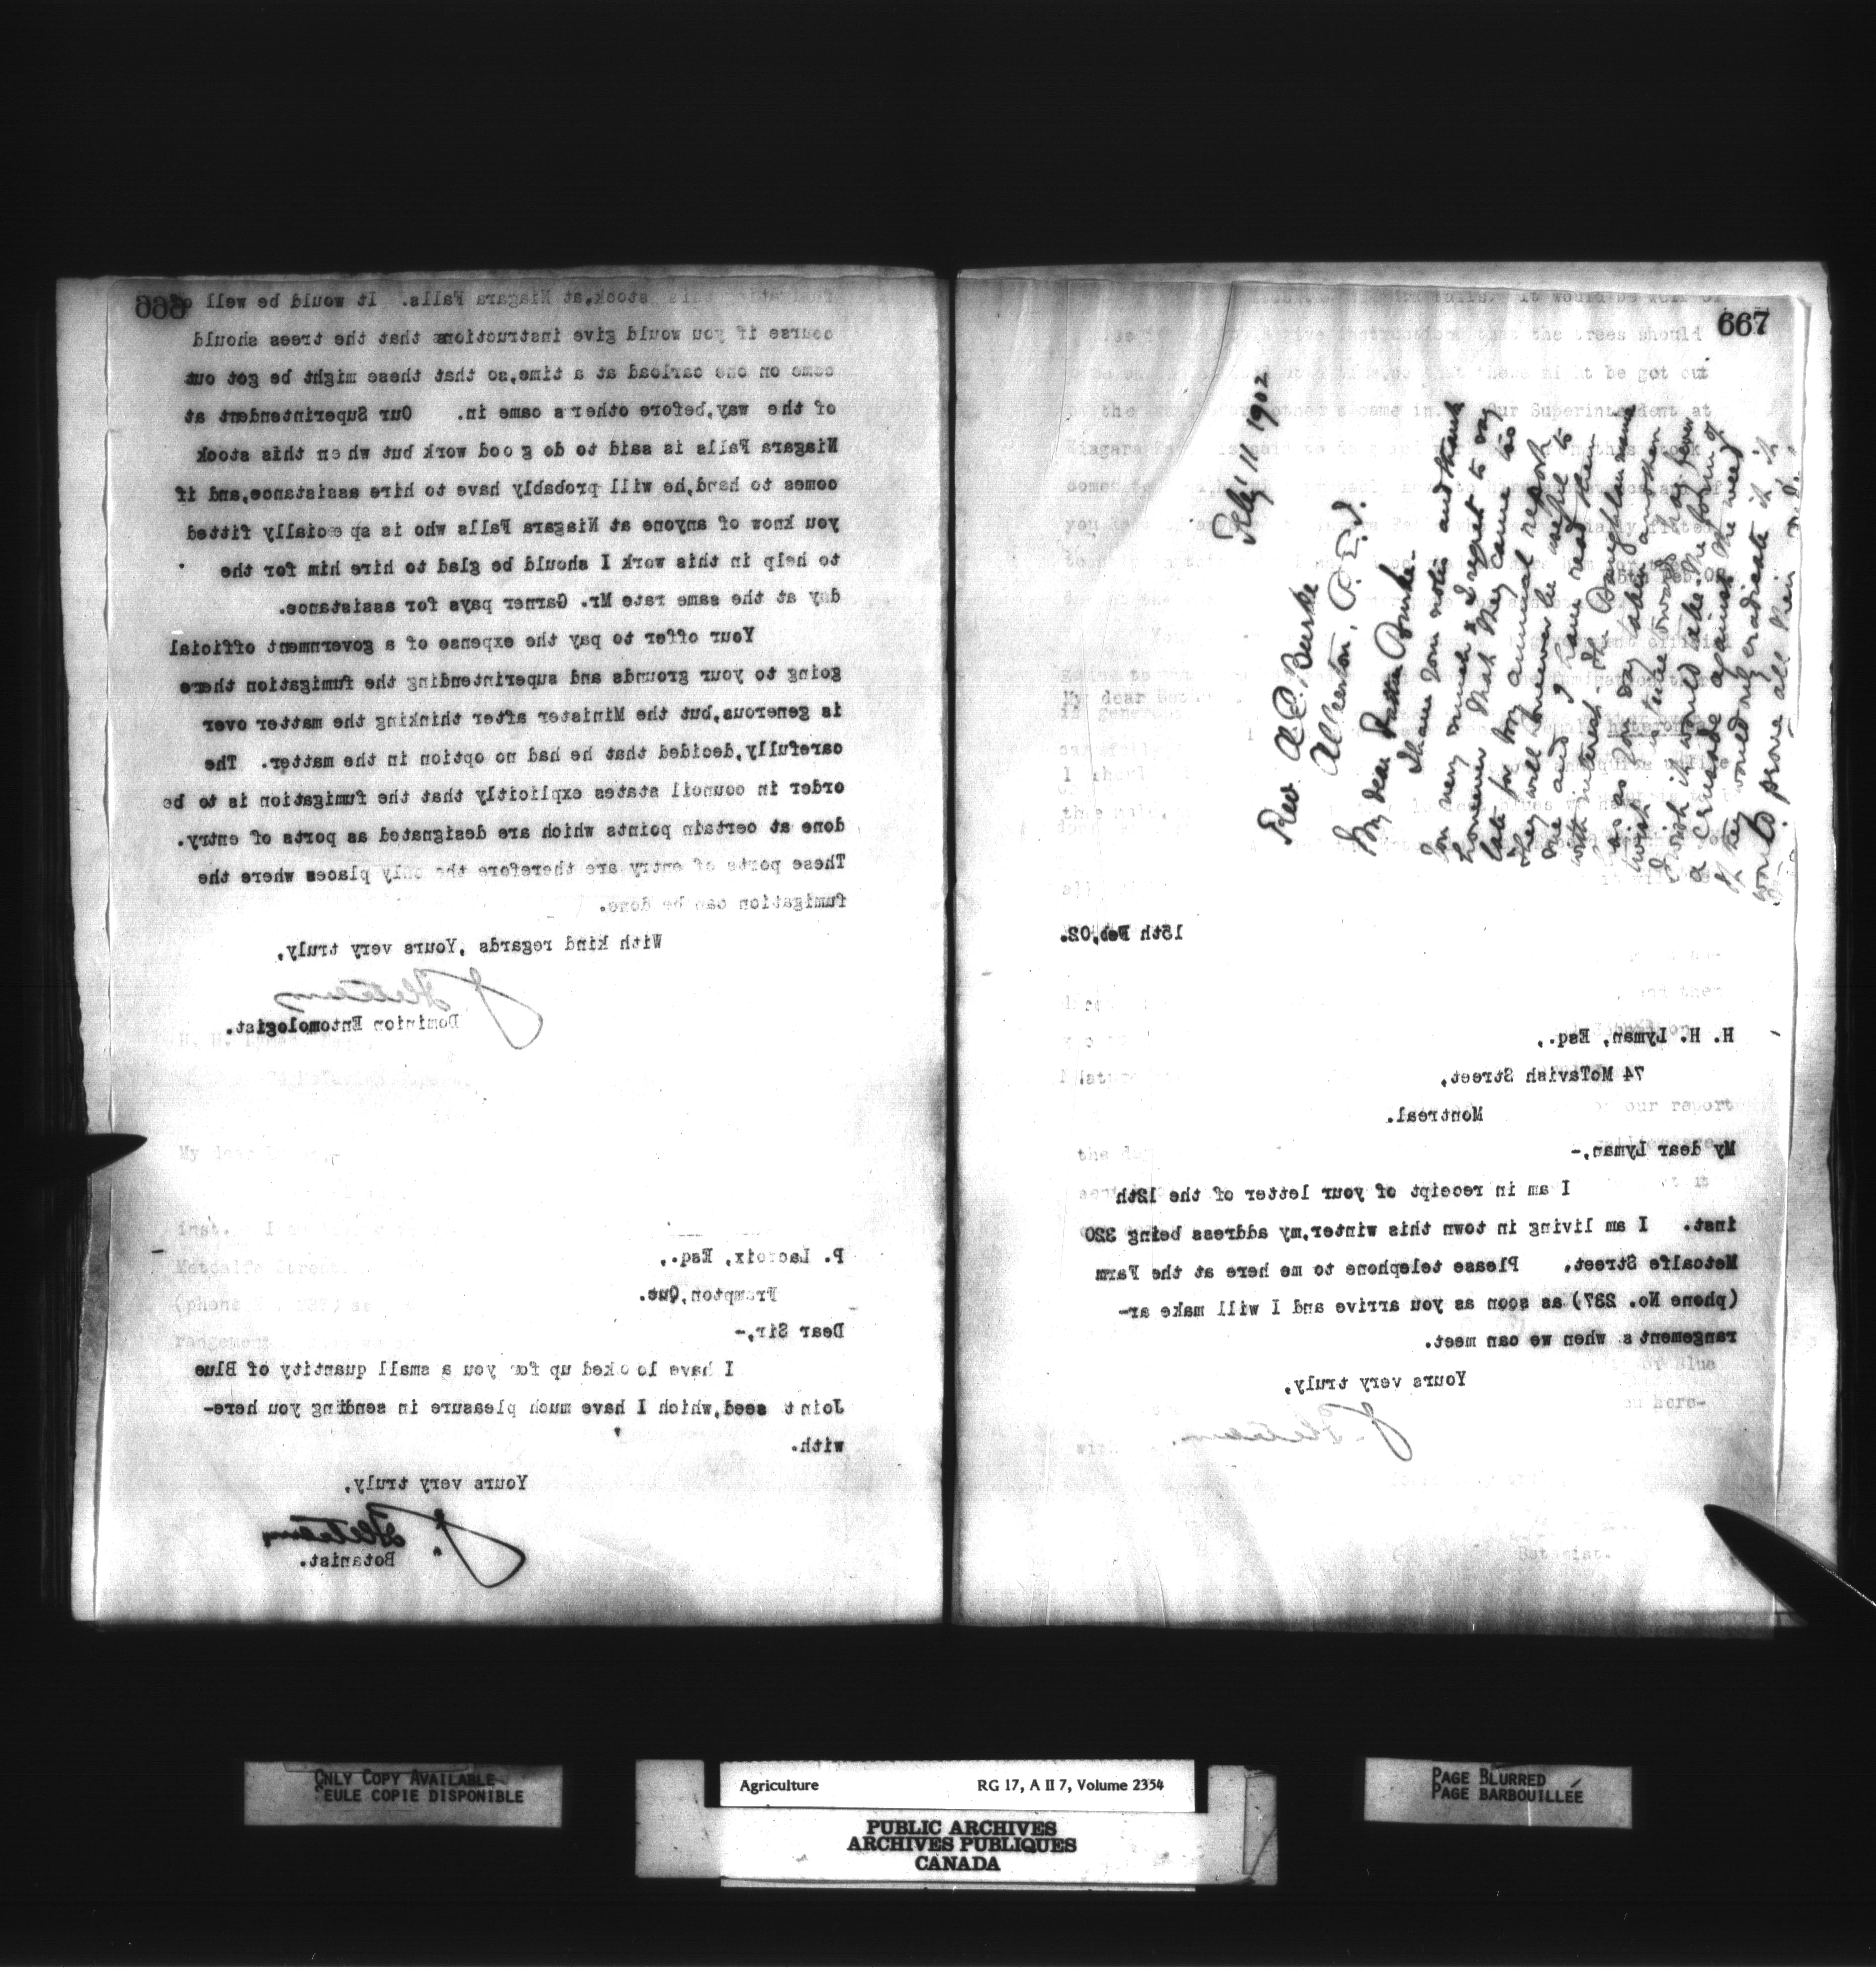 666
fumigating this stock,at Niagara Falls. It would be well of
course if you would give instructions that the trees should
come on one carload at a time,so that these might be got out
of the way,before others came in. Our Superintendent at
Niagara Falls is said to do good work but when this stock
comes to hand,he will probably have to hire assistance,and if
you know of anyone at Niagara Falls who is specially fitted
to help in this work I should be glad to hire him for the
day at the same rate Mr. Garner pays for assistance.
Your offer to pay the expense of a government official
going to your grounds and superintending the fumigation there
is generous,but the Minister after thinking the matter over
carefully,decided that he had no option in the matter. The
order in council states explicitly that the fumigation is to be
done at certain points which are designated as ports of entry.
These ports of entry are therefore the only places where the
fumigation can be done.
With kind regards ,Yours very truly,
J. Fletcher
Dominion Entomologist.
P. Lacroix, Esq.,
Frampton,Que.
Dear Sir,-
I have looked up for you a small quantity of Blue
Joint seed,which I have much pleasure in sending you here-
with.
Yours very truly,
J. Fletcher
Botanist.
667
Feby 11 1902
Rev. A.E. Burke
Alberton, P.E.I.
My dear Father Burke-
I have your notes and thank
you very much & I regret to say
however that they came too
late for my annual report
They will however be useful to
me and I have read them
with interest. The
is as you say taken another
twist
I wish it would take the form of
a crusade against the weed
if they would only eradicate it it
would prove all their
15th Feb,02.
H. H. Lyman, Esq.,
74 McTavish Street,
Montreal.
My dear Lyman,-
I am in receipt of your letter of the 12th
inst. I am living in town this winter,my address being 320
Metcalfe Street. Please telephone to me here at the Farm
(phone No. 237) as soon as you arrive and I will make ar-
rangements when we can meet.
Yours very truly,
J. Fletcher.
ONLY COPY AVAILABLE
SEULE COPIE DISPONIBLE
Agriculture RG 17, A II 7, Volume 2354
PUBLIC ARCHIVES
ARCHIVES PUBLIQUES
CANADA
PAGE BLURRED
PAGE BARBOUILLÉE